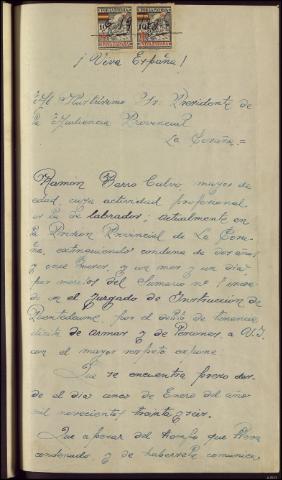 ¡Viva España!
Iltrísimo Sr. Presidente de
la Audiencia Provincial
La Coruña.=
Ramon Barro Calvo, mayor de
edad, cuya actividad profesional
es la de labrador; actualmente en
la Prision Provincial de La Coru-
ña, extinguiendo condena de dos años
y once meses, y un mes y un dia,
por méritos del Sumario nº 1
en el Juzgado de Instrucción de
Puentedeume, por el delito de tenencia
ilicita de armas y de a V.I.
con el mayor respeto expone
Que se encuentra preso des-
de el dia cinco de Enero del año
mil novecientos treinta y seis.
Que a pesar del tiempo que lleva
condenado, y de habersele comunica-